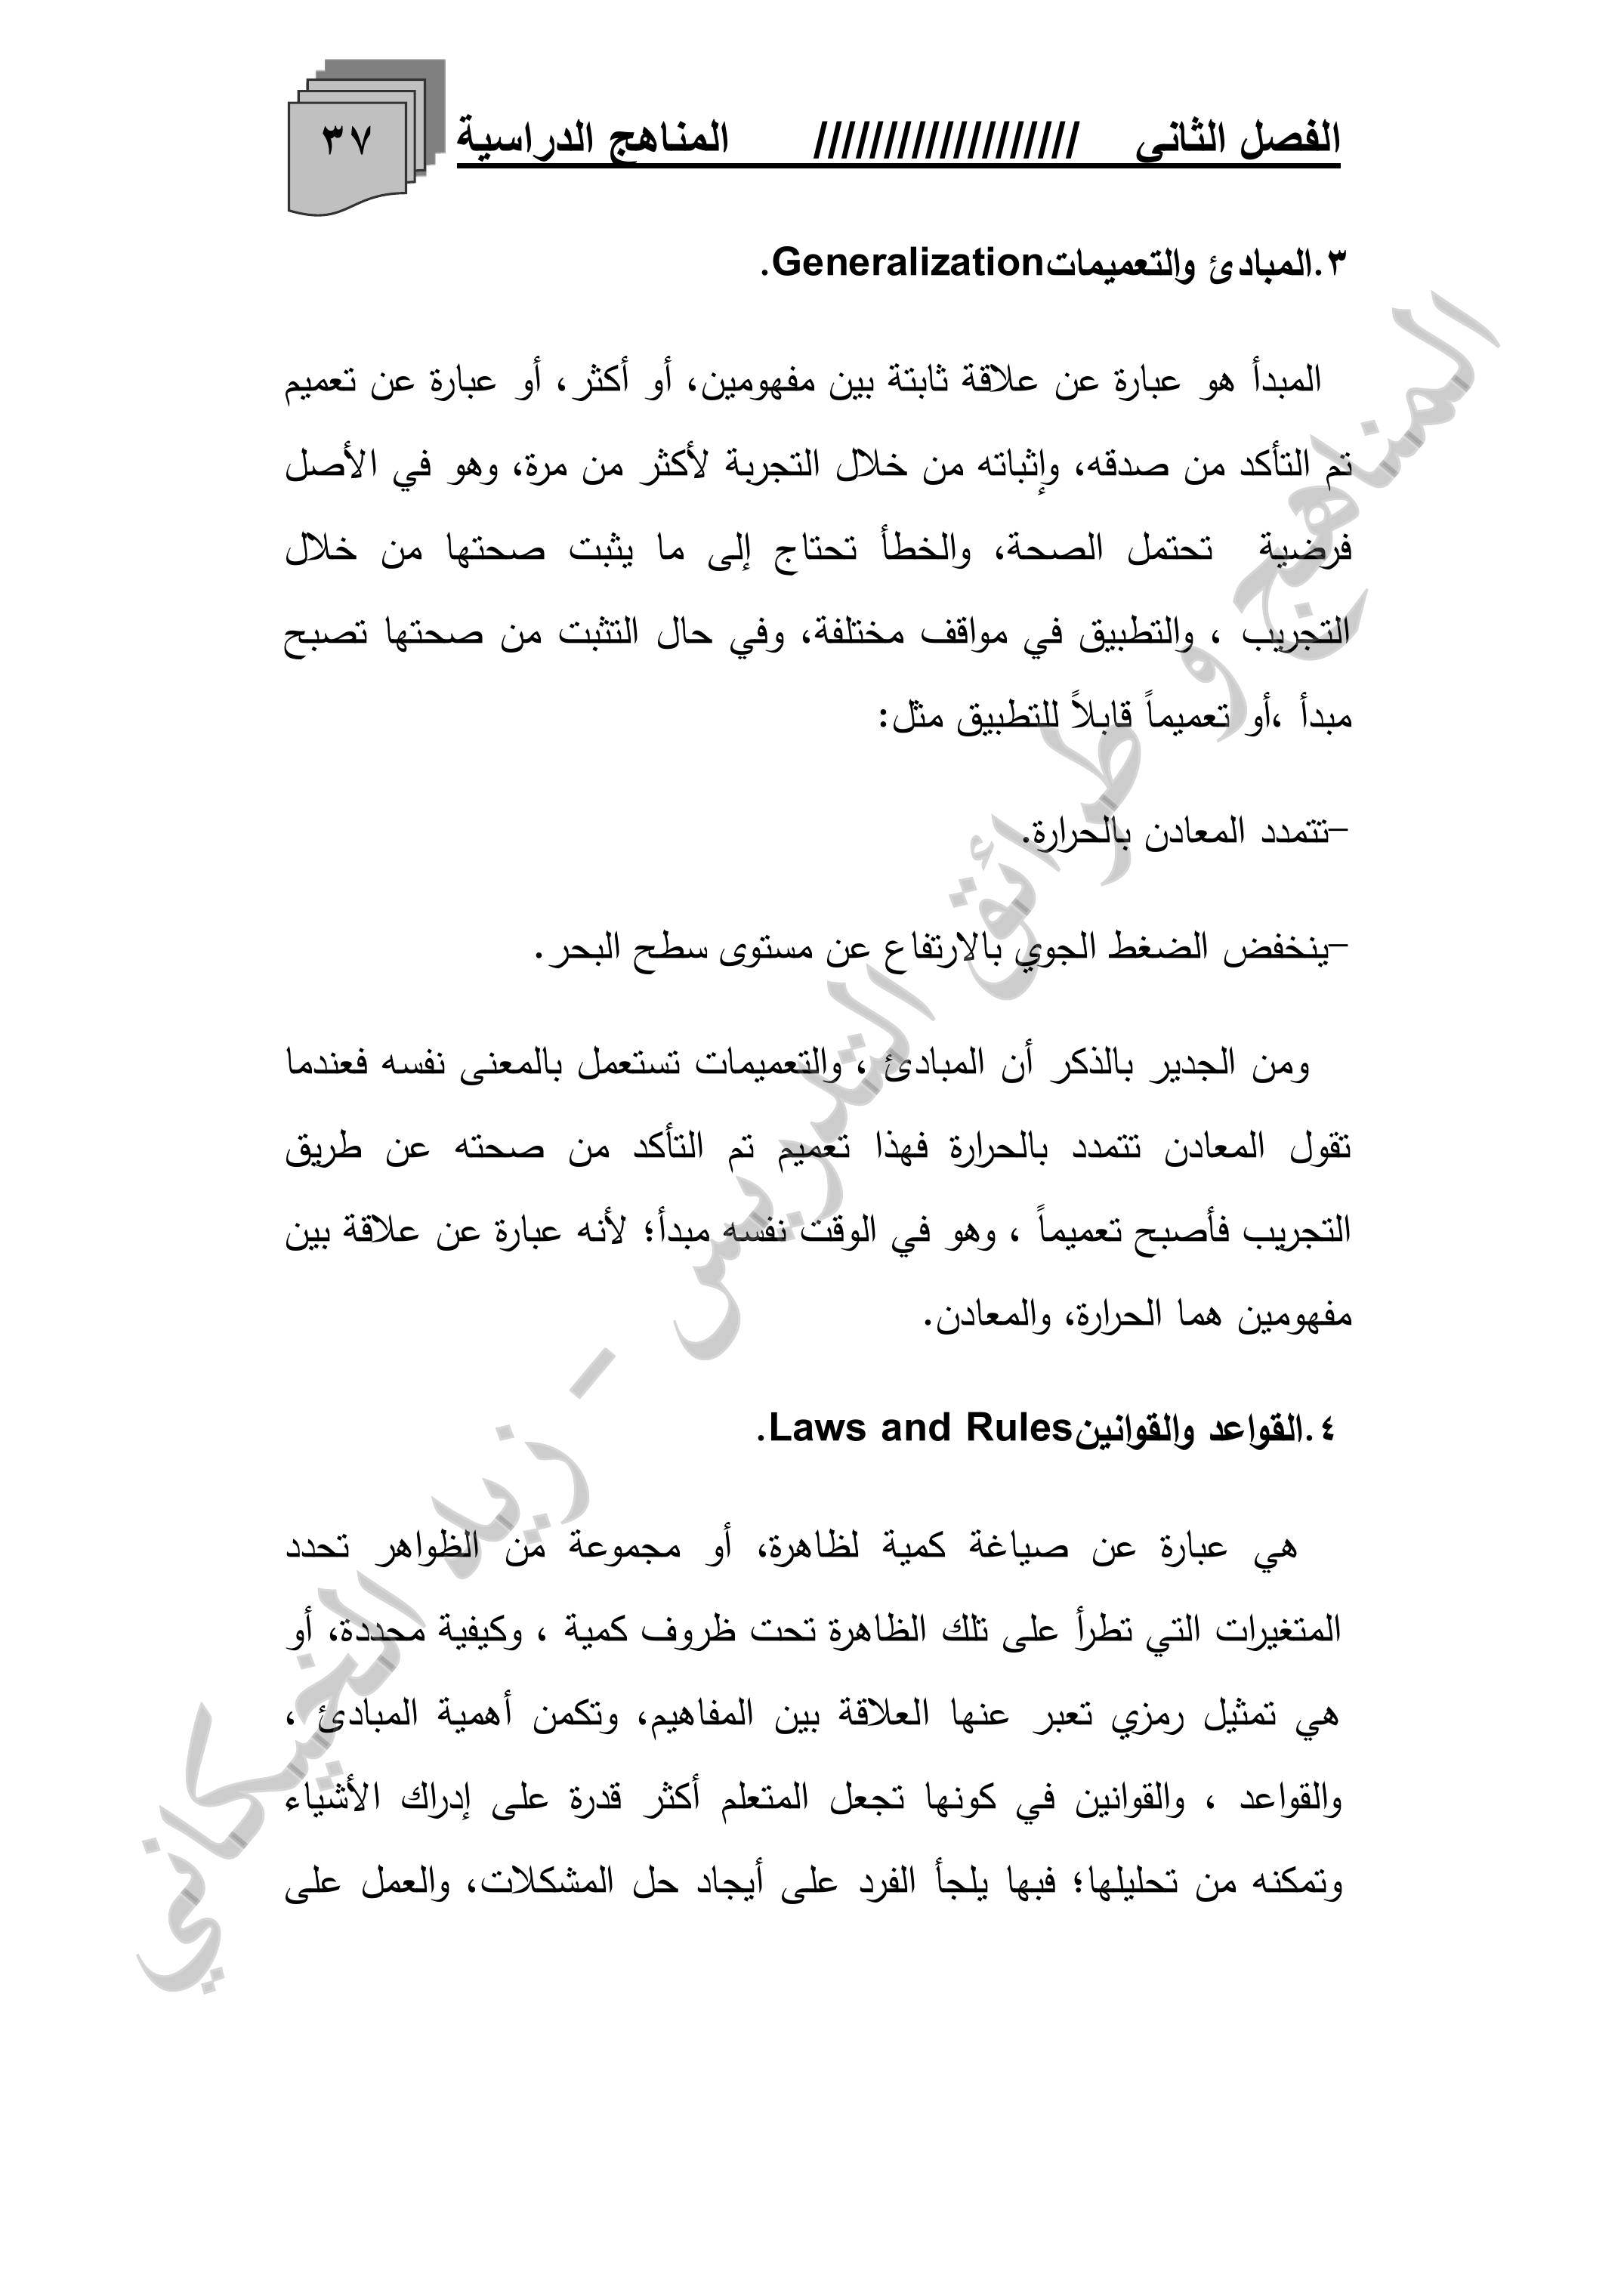 الفصل الثاني /////////////////// المناهج الدراسية ٣٧
٣.المبادئ والتعميمات Generalization.
المبدأ هو عبارة عن علاقة ثابتة بين مفهومين، أو أكثر، أو عبارة عن تعميم
تم التأكد من صدقه، وإثباته من خلال التجربة لأكثر من مرة، وهو في الأصل
فرضية تحتمل الصحة، والخطأ تحتاج إلى ما يثبت صحتها من خلال
التجريب ، والتطبيق في مواقف مختلفة، وفي حال التثبت من صحتها تصبح
مبدأ ،أو تعميماً قابلاً للتطبيق مثل:
-تتمدد المعادن بالحرارة.
-ينخفض الضغط الجوي بالارتفاع عن مستوى سطح البحر.
ومن الجدير بالذكر أن المبادئ ، والتعميمات تستعمل بالمعنى نفسه فعندما
تقول المعادن تتمدد بالحرارة فهذا تعميم تم التأكد من صحته عن طريق
التجريب فأصبح تعميماً ، وهو في الوقت نفسه مبدأ؛ لأنه عبارة عن علاقة بين
مفهومين هما الحرارة، والمعادن.
٤.القواعد والقوانين Laws and Rules.
هي عبارة عن صياغة كمية لظاهرة، أو مجموعة من الظواهر تحدد
المتغيرات التي تطرأ على تلك الظاهرة تحت ظروف كمية ، وكيفية محددة، أو
هي تمثيل رمزي تعبر عنها العلاقة بين المفاهيم، وتكمن أهمية المبادئ ،
والقواعد ، والقوانين في كونها تجعل المتعلم أكثر قدرة على إدراك الأشياء
وتمكنه من تحليلها؛ فبها يلجأ الفرد على أيجاد حل المشكلات، والعمل على
المناهج و طرائق التدريس - زيد الخيكاني